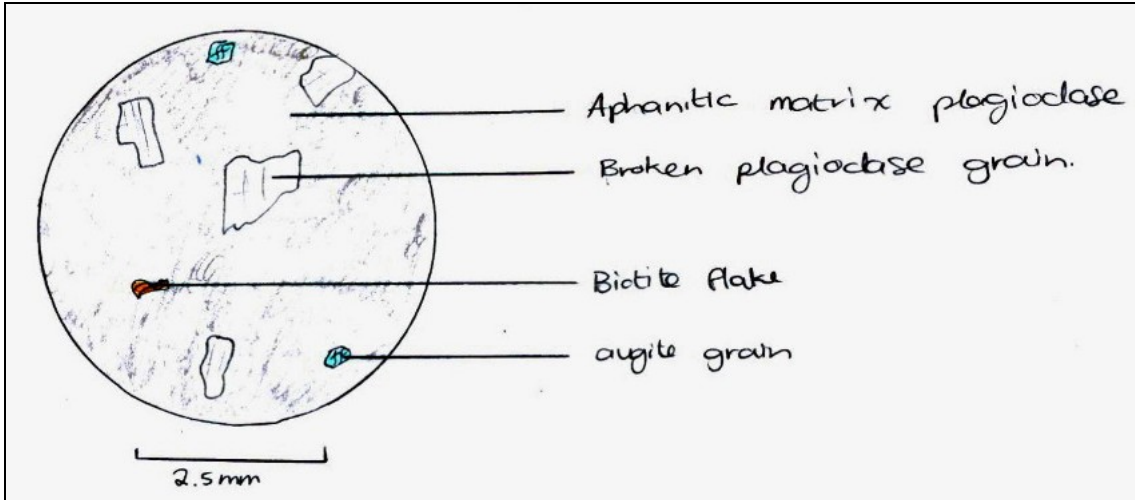 Aphanitic matrix plagioclase
Broken plagioclase grain.
Biotite flake
augite grain
2.5mm